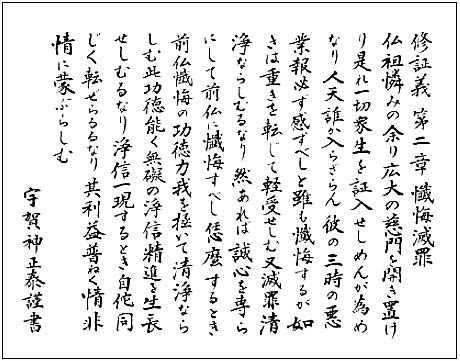 修証義 第二章 懺悔滅罪
仏祖憐みの余り広大の慈門を開き置け
り是れ一切衆生を証入せしめんが為め
なり人天誰か入らざらん 彼の三時の悪
業報必ず感ずべしと雖も懺悔するが如
きは重きを転じて軽受せしむ又滅罪清
浄ならしむるなり 然あれば誠心を専ら
にして前仏に懺悔すべし恁麼するとき
前仏懺悔の功徳力我を拯いて清浄なら
しむ此功徳能く無礙の浄信精進を生長
せしむるなり浄信一現するとき自佗同
じく転ぜらるるなり其利益普ねく情非
情に蒙ぶらしむ
宇賀神正泰謹書